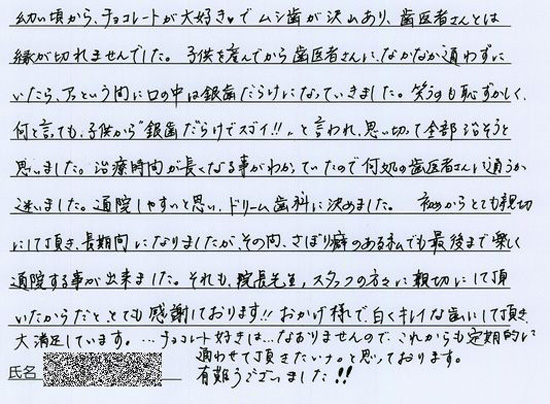 幼い頃から、チョコレートが大好き♥でムシ歯が沢山あり、歯医者さんとは
縁が切れませんでした。子供を産んでから歯医者さんに、なかなか通わずに
いたら、アッという間に口の中は銀歯だらけになっていきました。笑うのも恥ずかしく、
何と言っても、子供から"銀歯だらけでスゴイ!!"、と言われ、思い切って全部治そうと
思いました。治療時間が長くなる事がわかっていたので何処の歯医者さんに通うか
迷いました。通院しやすいと思い、ドリーム歯科に決めました。 初めからとても親切
にして頂き、長期間になりましたが、その間、さぼり癖のある私でも最後まで楽しく
通院する事が出来ました。それも、院長先生、スタッフの方々に親切にして頂
いたからだと、とても感謝しております!!おかげ様で、白くキレイな歯にして頂き、
大満足しています。…チョコレート好きは…なおりませんので、これからも定期的に
通わせて頂きたいナ。と思っております。
有難うございました!!
氏名